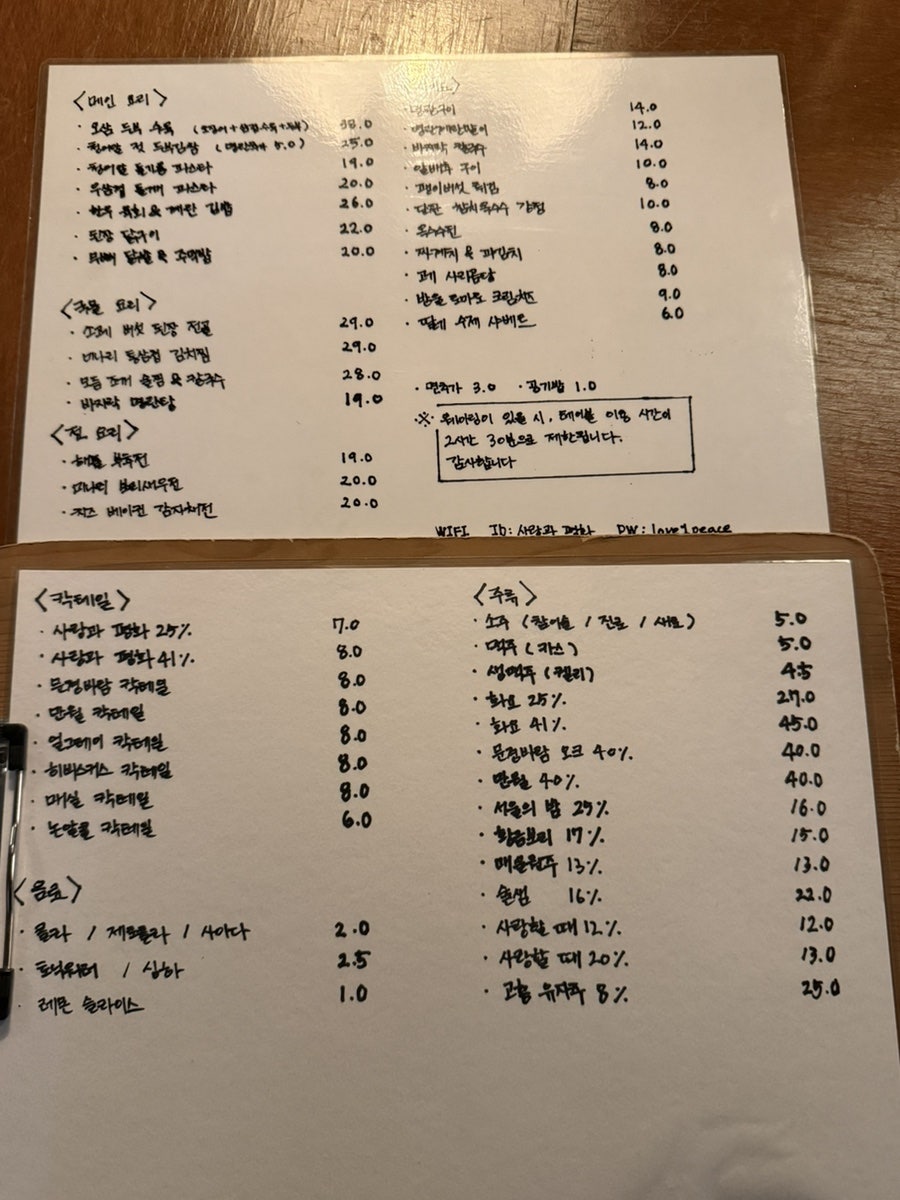 <메인 요리>
· 오삼 두부 수육 (오징어+삼겹수육+두부) 38.0
· 청어알 젓 두부김쌈 (명란추가 5.0) 25.0
· 청어알 들기름 파스타 19.0
· 우삼겹 들깨 파스타 20.0
· 한우 육회 & 계란 김밥 26.0
· 된장 닭구이 22.0
· & 주먹밥 20.0
<국물 요리>
· 소고기 버섯 된장 전골 29.0
· 미나리 통삼겹 김치찜 29.0
· 모듬 조개 술찜 & 칼국수 28.0
· 바지락 명란탕 19.0
<전 요리>
· 해물 부추전 19.0
· 미나리 보리새우전 20.0
· 치즈 베이컨 감자채전 20.0
· 명란구이 14.0
· 명란계란말이 12.0
· 바지락 칼국수 14.0
· 알배추 구이 10.0
· 팽이버섯 튀김 8.0
· 참치옥수수 강정 10.0
· 옥수수전 8.0
· 짜계치 & 파김치 8.0
· 사리곰탕 8.0
· 방울 토마토 크림치즈 9.0
· 수제 샤베트 6.0
· 면추가 3.0 · 공기밥 1.0
※ 웨이팅이 있을 시, 테이블 이용 시간이
2시간 30분으로 제한됩니다.
감사합니다
WIFI ID: 사랑과 평화 PW: love1peace
<칵테일>
· 사랑과 평화 25% 7.0
· 사랑과 평화 41% 8.0
· 문경바람 칵테일 8.0
· 만월 칵테일 8.0
· 얼그레이 칵테일 8.0
· 히비스커스 칵테일 8.0
· 매실 칵테일 8.0
· 논알콜 칵테일 6.0
<음료>
· 콜라 / 제로콜라 / 사이다 2.0
· 토닉워터 / 심하 2.5
· 레몬 슬라이스 1.0
<주류>
· 소주 (참이슬 / 진로 / 새로) 5.0
· 맥주 (카스) 5.0
· 생맥주 (켈리) 4.5
· 화요 25% 27.0
· 화요 41% 45.0
· 문경바람 오크 40% 40.0
· 만월 40% 40.0
· 서울의 밤 25% 16.0
· 황금보리 17% 15.0
· 매실원주 13% 13.0
· 솔섬 16% 22.0
· 사랑할 때 12% 12.0
· 사랑할 때 20% 13.0
· 고흥 유자주 8% 25.0